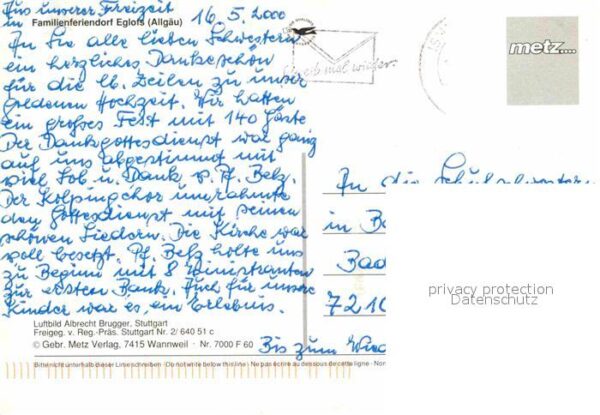 Aus unserer Freizeit
in Familienferiendorf Eglofs (Allgäu) 16.5.2000
An Sie alle lieben Schwestern
ein herzliches Dankeschön
für die lb. Zeilen zu unser
goldenen Hochzeit. Wir hatten
ein großes Fest mit 140 Gäste
Der Dankgottesdienst war ganz
auf uns abgestimmt mit
viel Lob u. Dank v. Pf. Belz.
Der Kolpingchor umrahmte
den Gottesdienst mit seinen
schönen Liedern. Die Kirche war
voll besetzt. Pf. Belz holte uns
zu Beginn mit 8 Ministranten
zur ersten Bank. Auch für unsre
Kinder war es, ein Erlebnis.
Luftbild Albrecht Brugger, Stuttgart
Freigeg. v. Reg.-Präs. Stuttgart Nr. 2/ 640 51 c
© Gebr. Metz Verlag, 7415 Wannweil · Nr. 7000 F 60
Bis zum Wied
Bitte nicht unterhalb dieser Linie schreiben · Do not write below this line · Ne pas écrire au dessous de cette ligne · Non
mal wieder.
metz....
An die Schulschwestern
in Ba
Bad
7210
privacy protection
Datenschutz